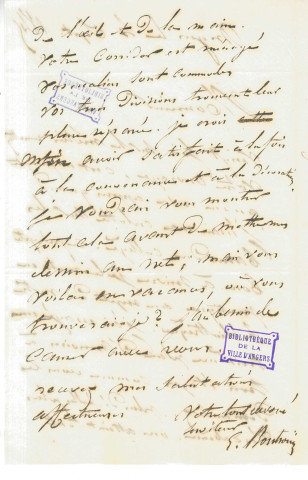 de l'œil et de la main.
votre corridor est ménagé
vos escaliers sont commodes
vos trois Divisions trouvent leur
place séparée. je crois
avoir satisfait à la fois
à la convenance et à la décoration
Je voudrais vous montrer
tout cela avant de mettre mes
dessins au net, mais vous
voilà en vacances, où vous
trouverai-je ? J'ai besoin de
causer avec vous.
recevez mes salutations
affectueuses
Votre tout dévoué
serviteur
E.
BIBLIOTHÈQUE
DE LA
VILLE D'ANGERS